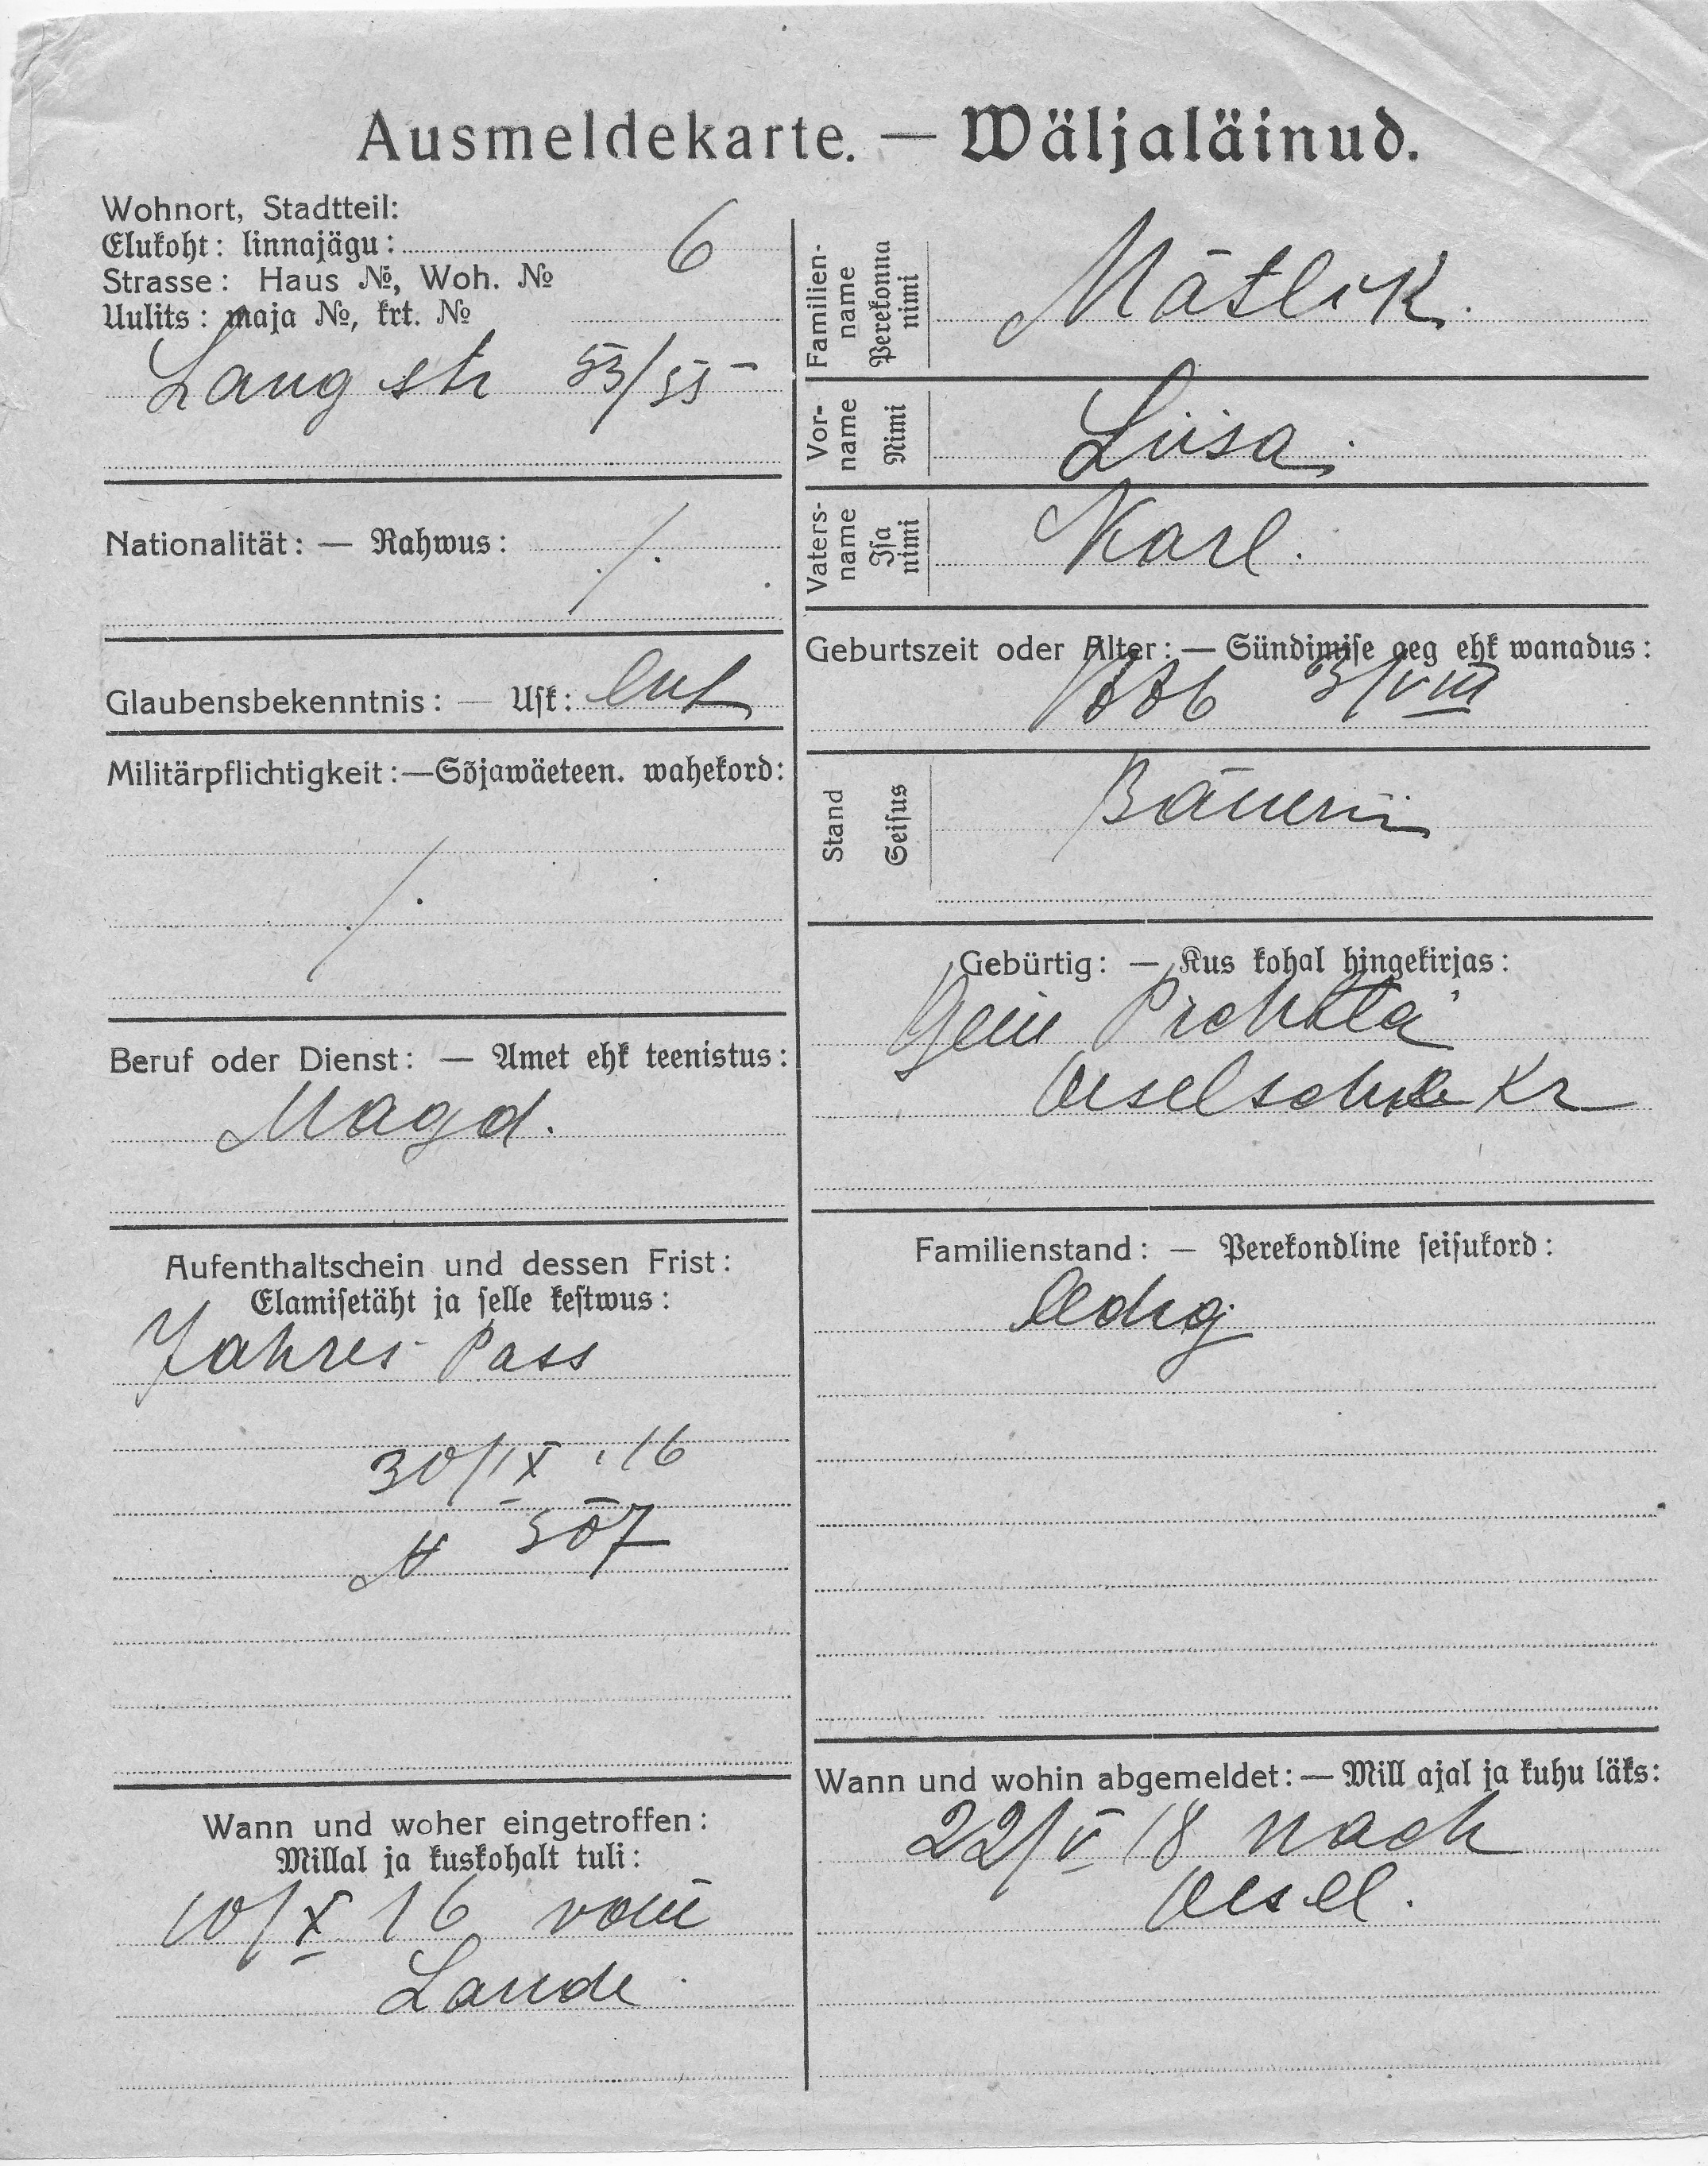 Ausmeldekarte. — Wäljaläinud.
Wohnort, Stadtteil:
Elukoht: linnajägu: 6
Strasse: Haus №, Woh. №
Uulits: maja №, krt. №
Lang str 53/55
Nationalität: — Rahwus: ·/·
Glaubensbekenntnis: — Usk: luth
Militärpflichtigkeit: — Sõjawäeteen. wahekord:
·/·
Beruf oder Dienst: — Amet ehk teenistus:
Magd.
Aufenthaltschein und dessen Frist:
Elamisetäht ja selle kestwus:
Jahres Pass
30/IX 16
№ 507
Wann und woher eingetroffen:
Millal ja kuskohalt tuli:
10/X 16 vom
Lande
Familien-
name
Perekonna
nimi
Mätlik.
Vor-
name
Nimi
Liisa.
Vaters-
name
Isa
nimi
Karl.
Geburtszeit oder Alter: — Sündimise aeg ehk wanadus:
1886 3/VIII
Stand
Seisus
Bäuerin
Gebürtig: — Kus kohal hingekirjas:
Gem
Oeselsche Kr
Familienstand: — Perekondline seisukord:
ledig
Wann und wohin abgemeldet: — Mill ajal ja kuhu läks:
22/V 18 nach
Oesel.